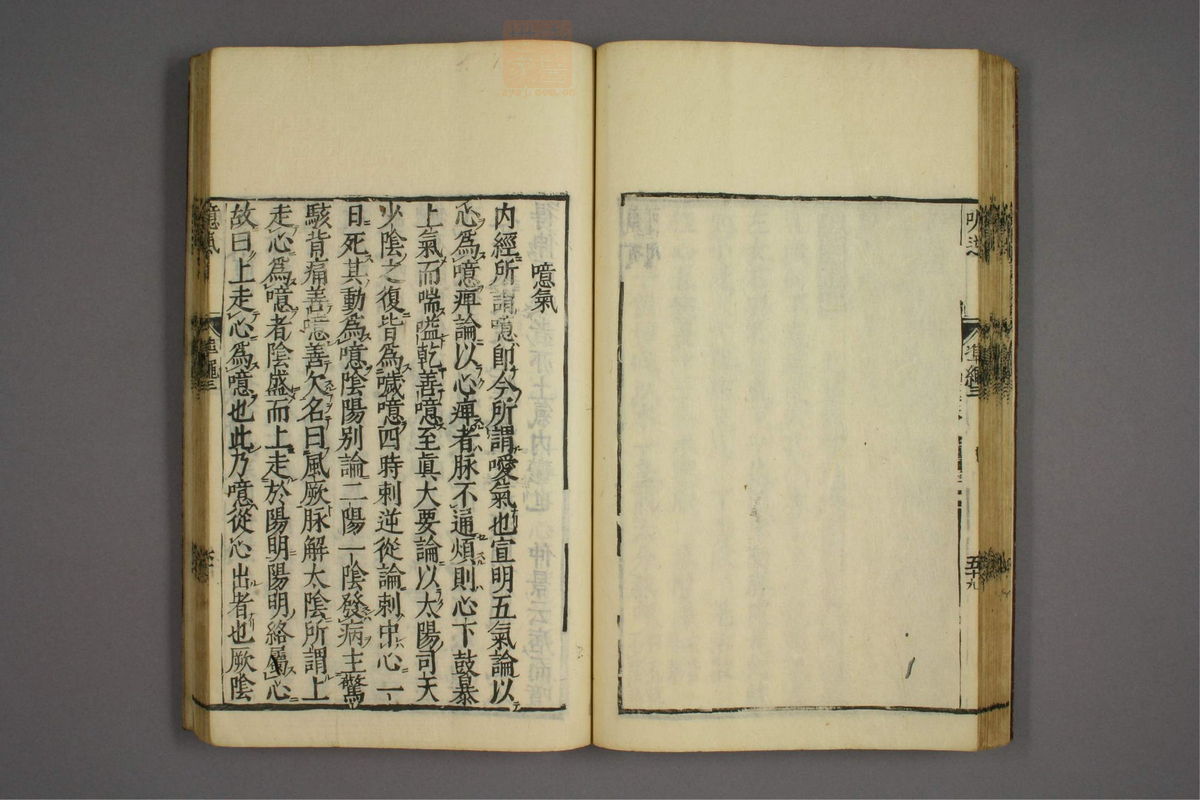 噫氣
内經所謂噫即今所謂噯氣也宣明五氣論以
心爲噫痺論以心痺者脉不通煩則心下鼓暴
上氣而喘嗌乾善噫至眞大要論以太陽司天
少陰之復皆爲噦噫四時刺逆從論刺中心一
日死其動爲噫陰陽别論二陽一陰發病主驚
駭背痛善噫善欠名曰風厥脉解太陰所謂上
走心爲噫者陰盛而上走於陽明陽明絡屬心
故曰上走心爲噫也此乃噫從心出者也厥陰